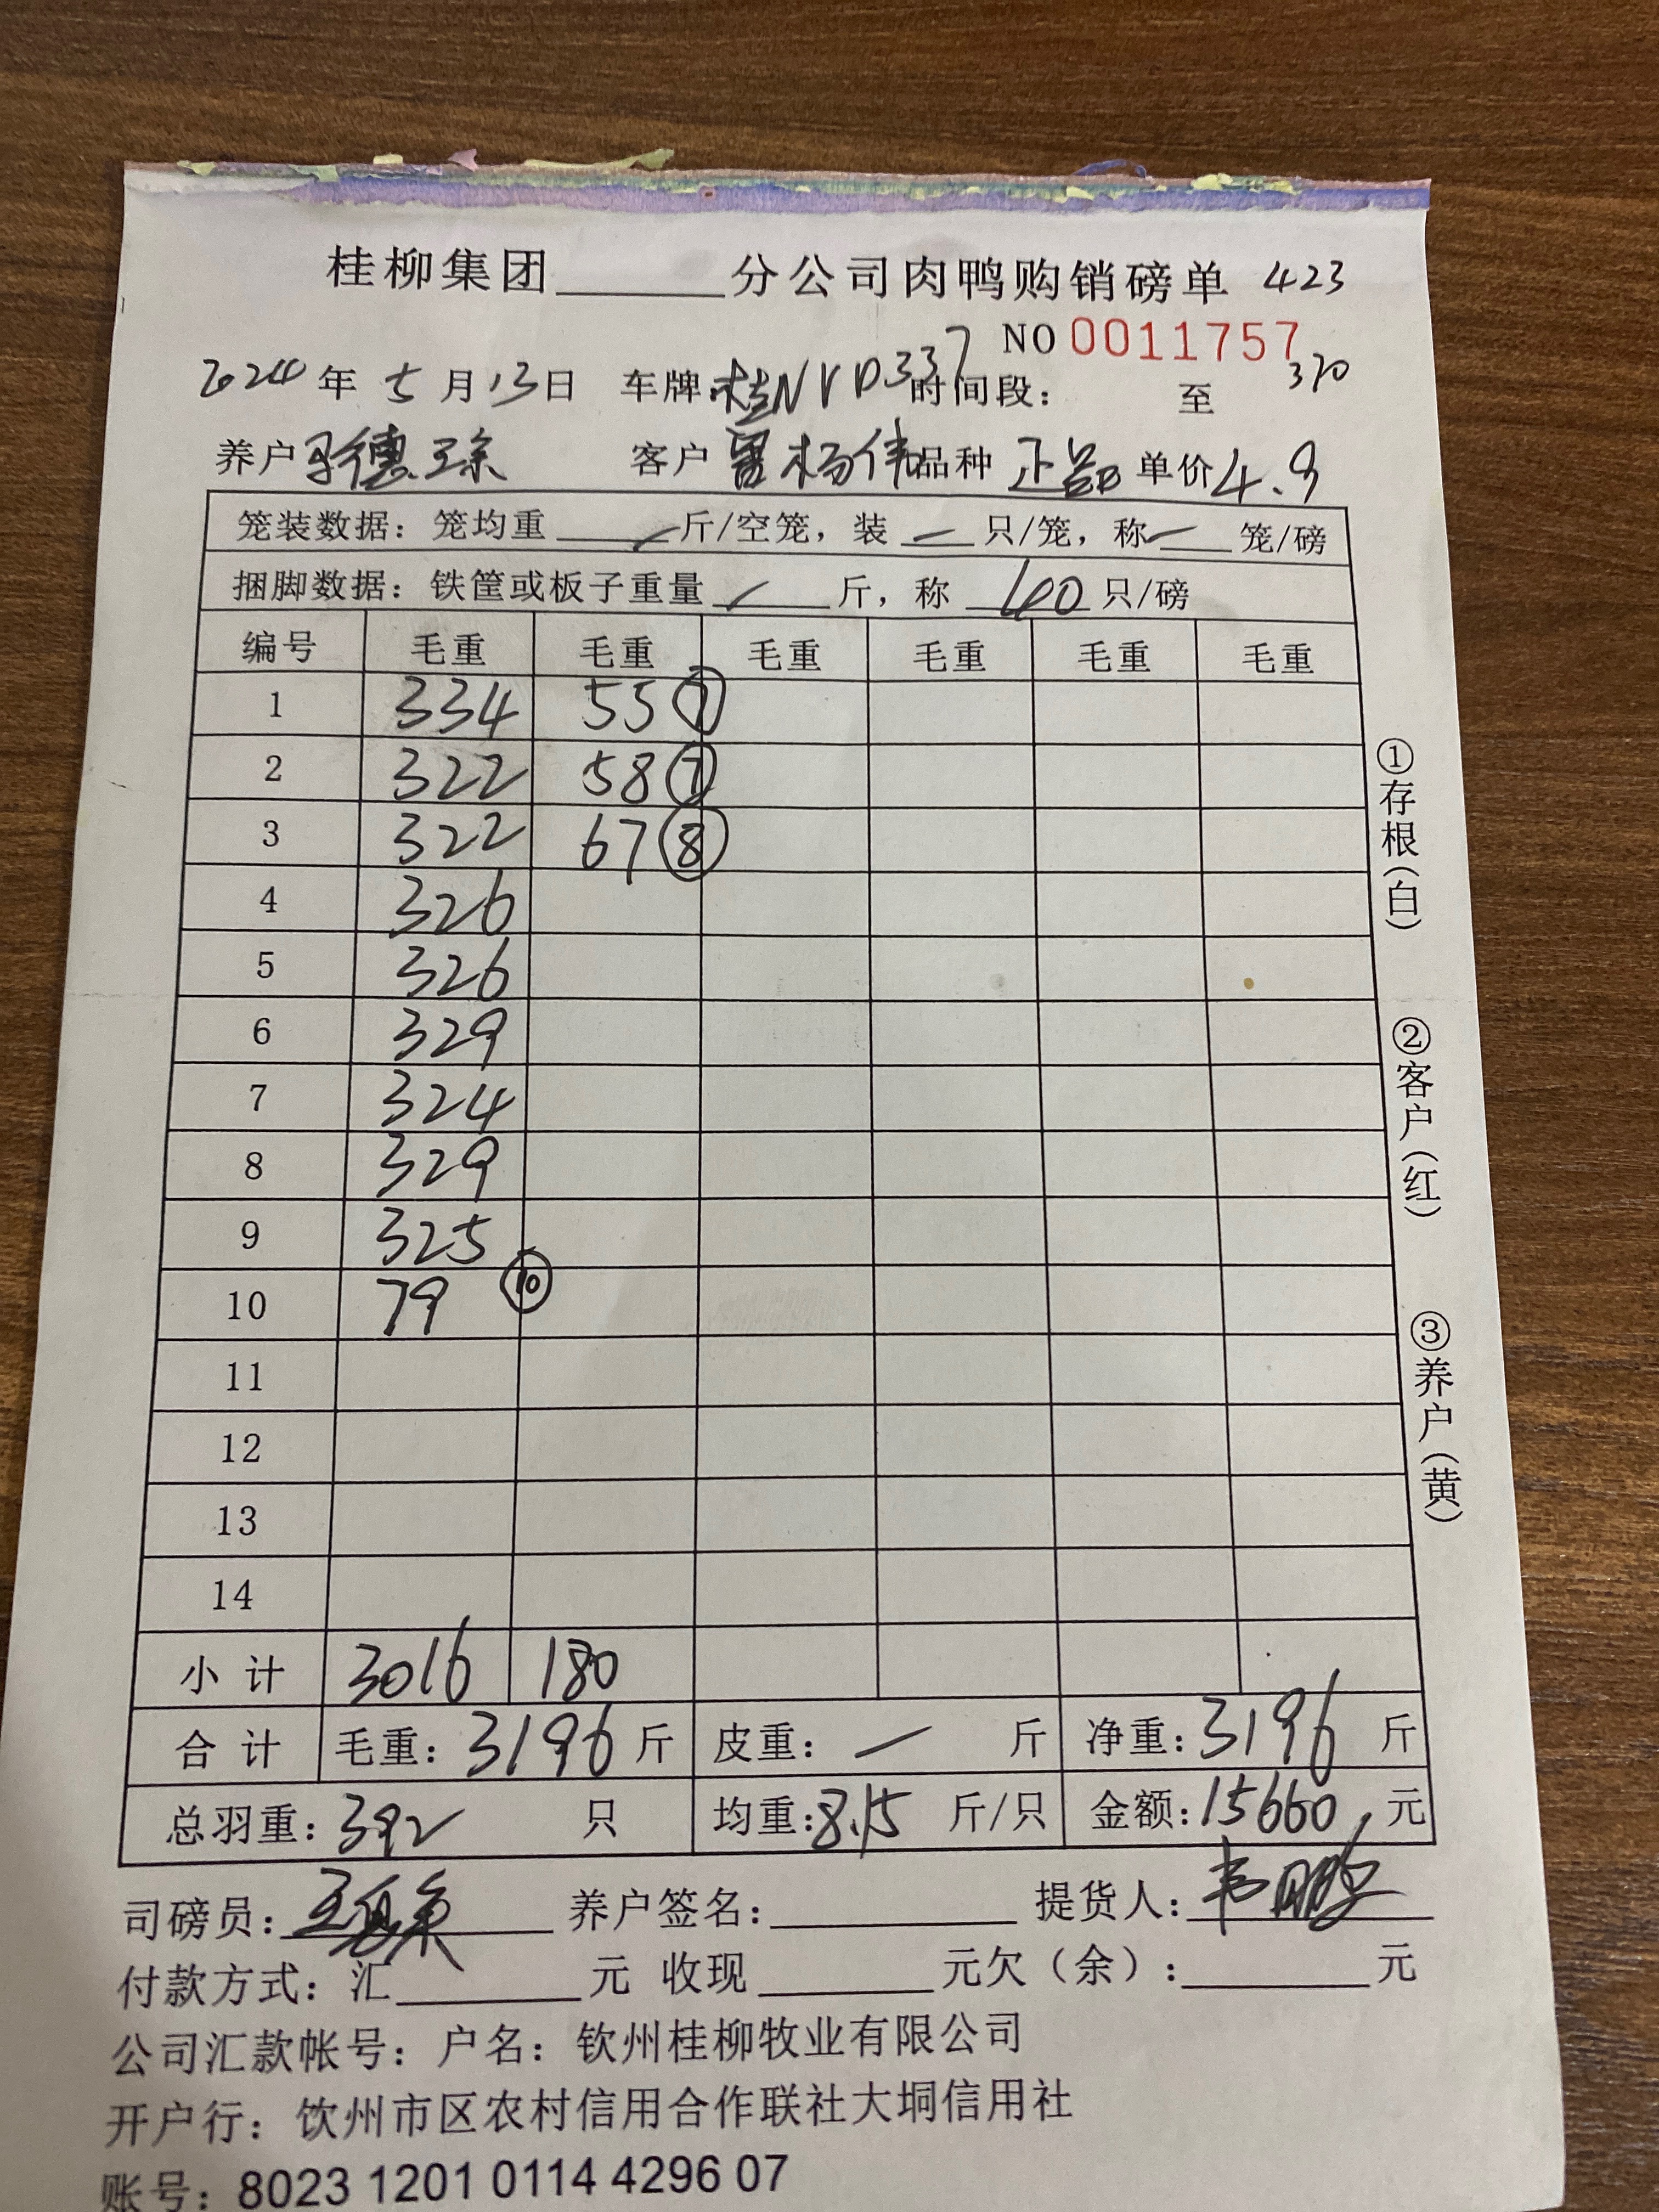 桂柳集团______分公司肉鸭购销磅单 423
NO 0011757
2024年5月13日 车牌:桂NVD337 时间段: 至 370
养户 德 客户 杨伟 品种 正品 单价 4.9
笼装数据: 笼均重 — 斤/空笼, 装 — 只/笼, 称 — 笼/磅
捆脚数据: 铁筐或板子重量 — 斤, 称 40 只/磅
编号 毛重 毛重 毛重 毛重 毛重 毛重
1 334 55 ⑦
2 322 58 ⑦
3 322 67 ⑧
4 326
5 326
6 329
7 324
8 329
9 325
10 79 ⑩
11
12
13
14
小计 3016 180
合计 毛重: 3196 斤 皮重: — 斤 净重: 3196 斤
总羽重: 392 只 均重: 8.15 斤/只 金额: 15660 元
司磅员: 养户签名: 提货人:
付款方式: 汇______元 收现______元欠(余):______元
公司汇款帐号: 户名: 钦州桂柳牧业有限公司
开户行: 饮州市区农村信用合作联社大垌信用社
账号: 8023 1201 0114 4296 07
①存根(白)
②客户(红)
③养户(黄)